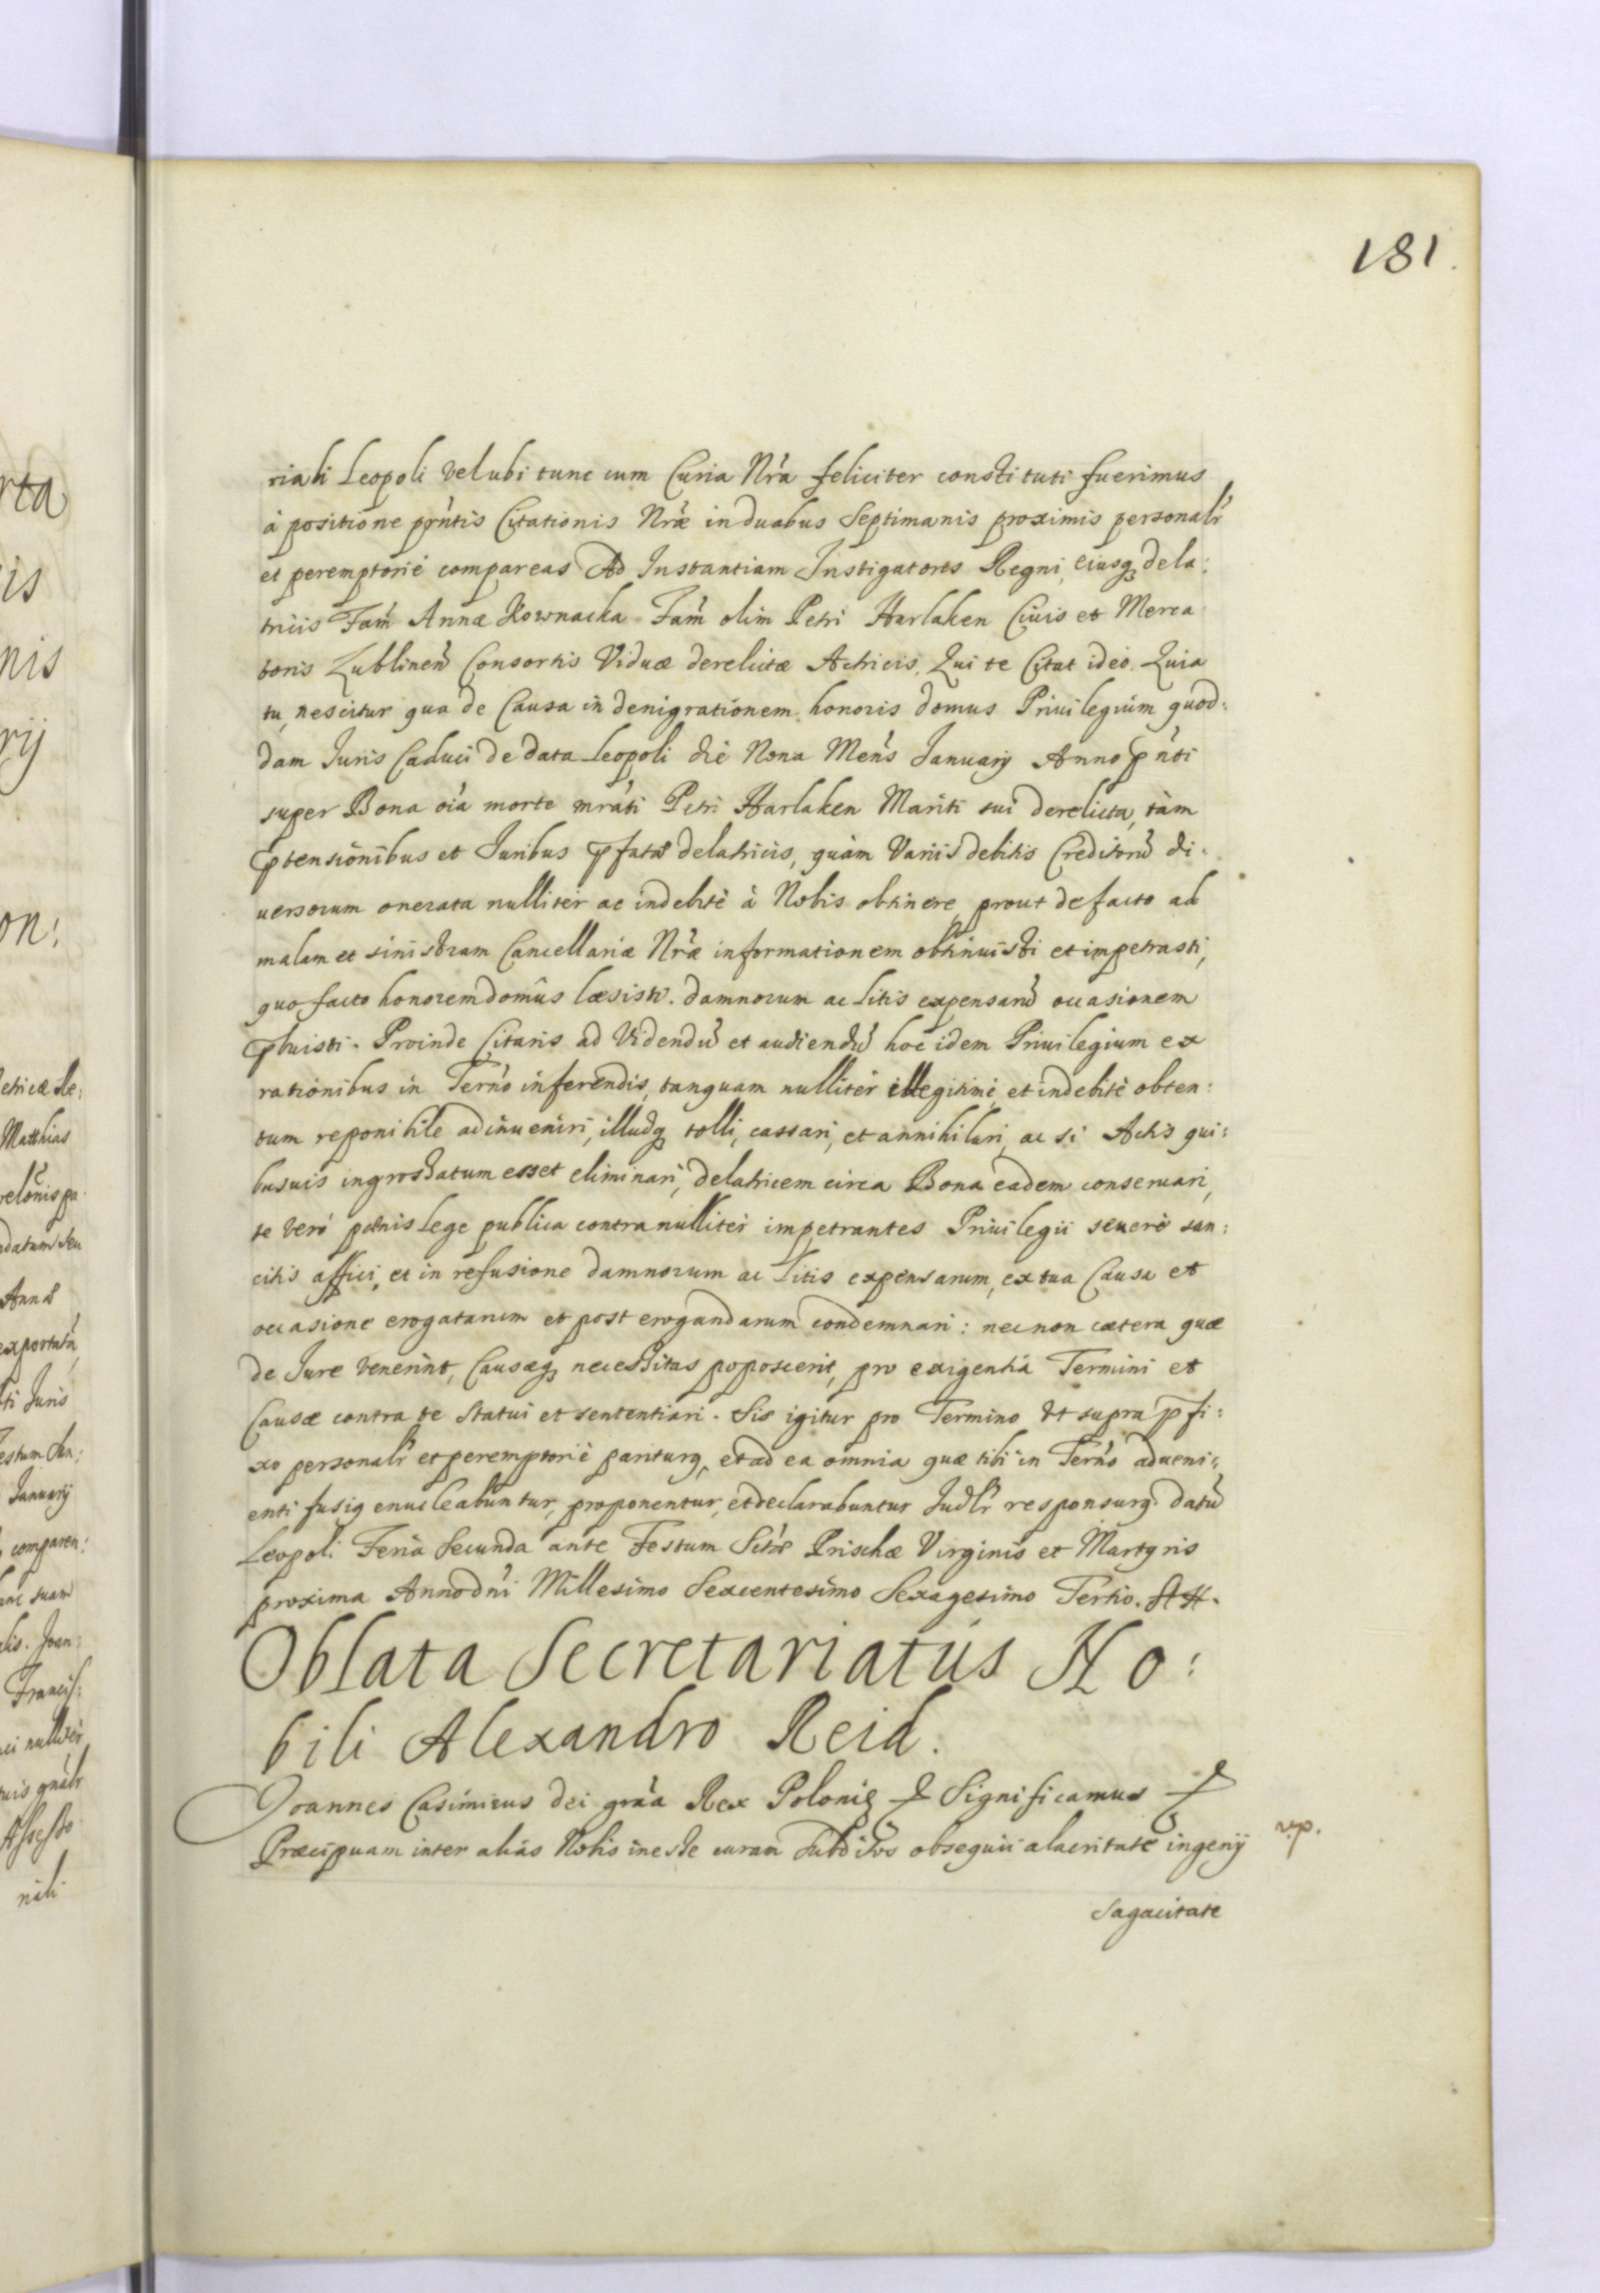 181.
riali Leopoli vel ubi tunc cum Curia Nr̃a feliciter constituti fuerimus
à positione pr̃ntis Citationis Nr̃æ in duabus Septimanis proximis personalr̃
et peremptoriè compareas Ad Instantiam Instigatoris Regni, eiusq́ dela:
tricis Fam̃ Annæ Kownacka Fam̃ olim Petri Harlaken Ciuis et Merca
toris Lublinen̄ Consortis Viduæ derelictæ Actricis. Qui te Citat ideò. Quia
tu, nescitur qua de Causa in denigrationem honoris domus Priuilegium quod:
dam Iuris Caduci de data Leopoli die Nona Men̄s January Anno pñti
super Bona oĩa morte mr̃ati Petri Harlaken Mariti sui derelicta, tàm
ptensionibus et Iuribus pfatæ delatricis, quàm Variis debitis Creditorū di:
uersorum onerata nulliter ac indebitè à Nobis obtinere, prout de facto ad
malam et sinistram Cancellariæ Nr̃æ informationem obtinuisti et impetrasti,
quo facto honorem domûs læsisti. damnorum ac litis expensarū occasionem
pbuisti. Proinde Citaris ad Videndū et audiendū hoc idem Priuilegium ex
rationibus in Ter̃no inferendis, tanquam nulliter illegitimè, et indebitè obten:
tum reponibile adinueniri, illudq́ tolli, cassari, et annihilari, ac si Actis qui:
busuis ingrossatum esset eliminari, delatricem circa Bona eadem conseruari,
te verò pœnis lege publica contra nulliter impetrantes Priuilegii seuerè san:
citis affici, et in refusione damnorum ac litis expensarum, ex tua Causa et
occasione erogatarum et post erogandarum condemnari: necnon cætera quæ
de Iure venerint, Causæq́ necessitas poposcerit, pro exigentia Termini et
Causæ contra te statui et sententiari. Sis igitur pro Termino Vt supra pfi:
xo personalr̃ et peremptoriè pariturq, et ad ea omnia quæ tibi in Ter̃no adueni:
enti fusiq enucleabuntur, proponentur, et declarabuntur Iudlr̃ responsurq. datū
Leopoli Feria Secunda ante Festum Sctæ Priscæ Virginis et Martyris
proxima Anno dñi Millesimo Sexcentesimo Sexagesimo Tertio.
Oblata Secretariatus No:
bili Alexandro Reid.
Joannes Casimirus dei gra̔a Rex Polonię Significamus
Præcipuam inter alias Nobis inesse curam subditos obsequii alacritate ingenij
sagacitate